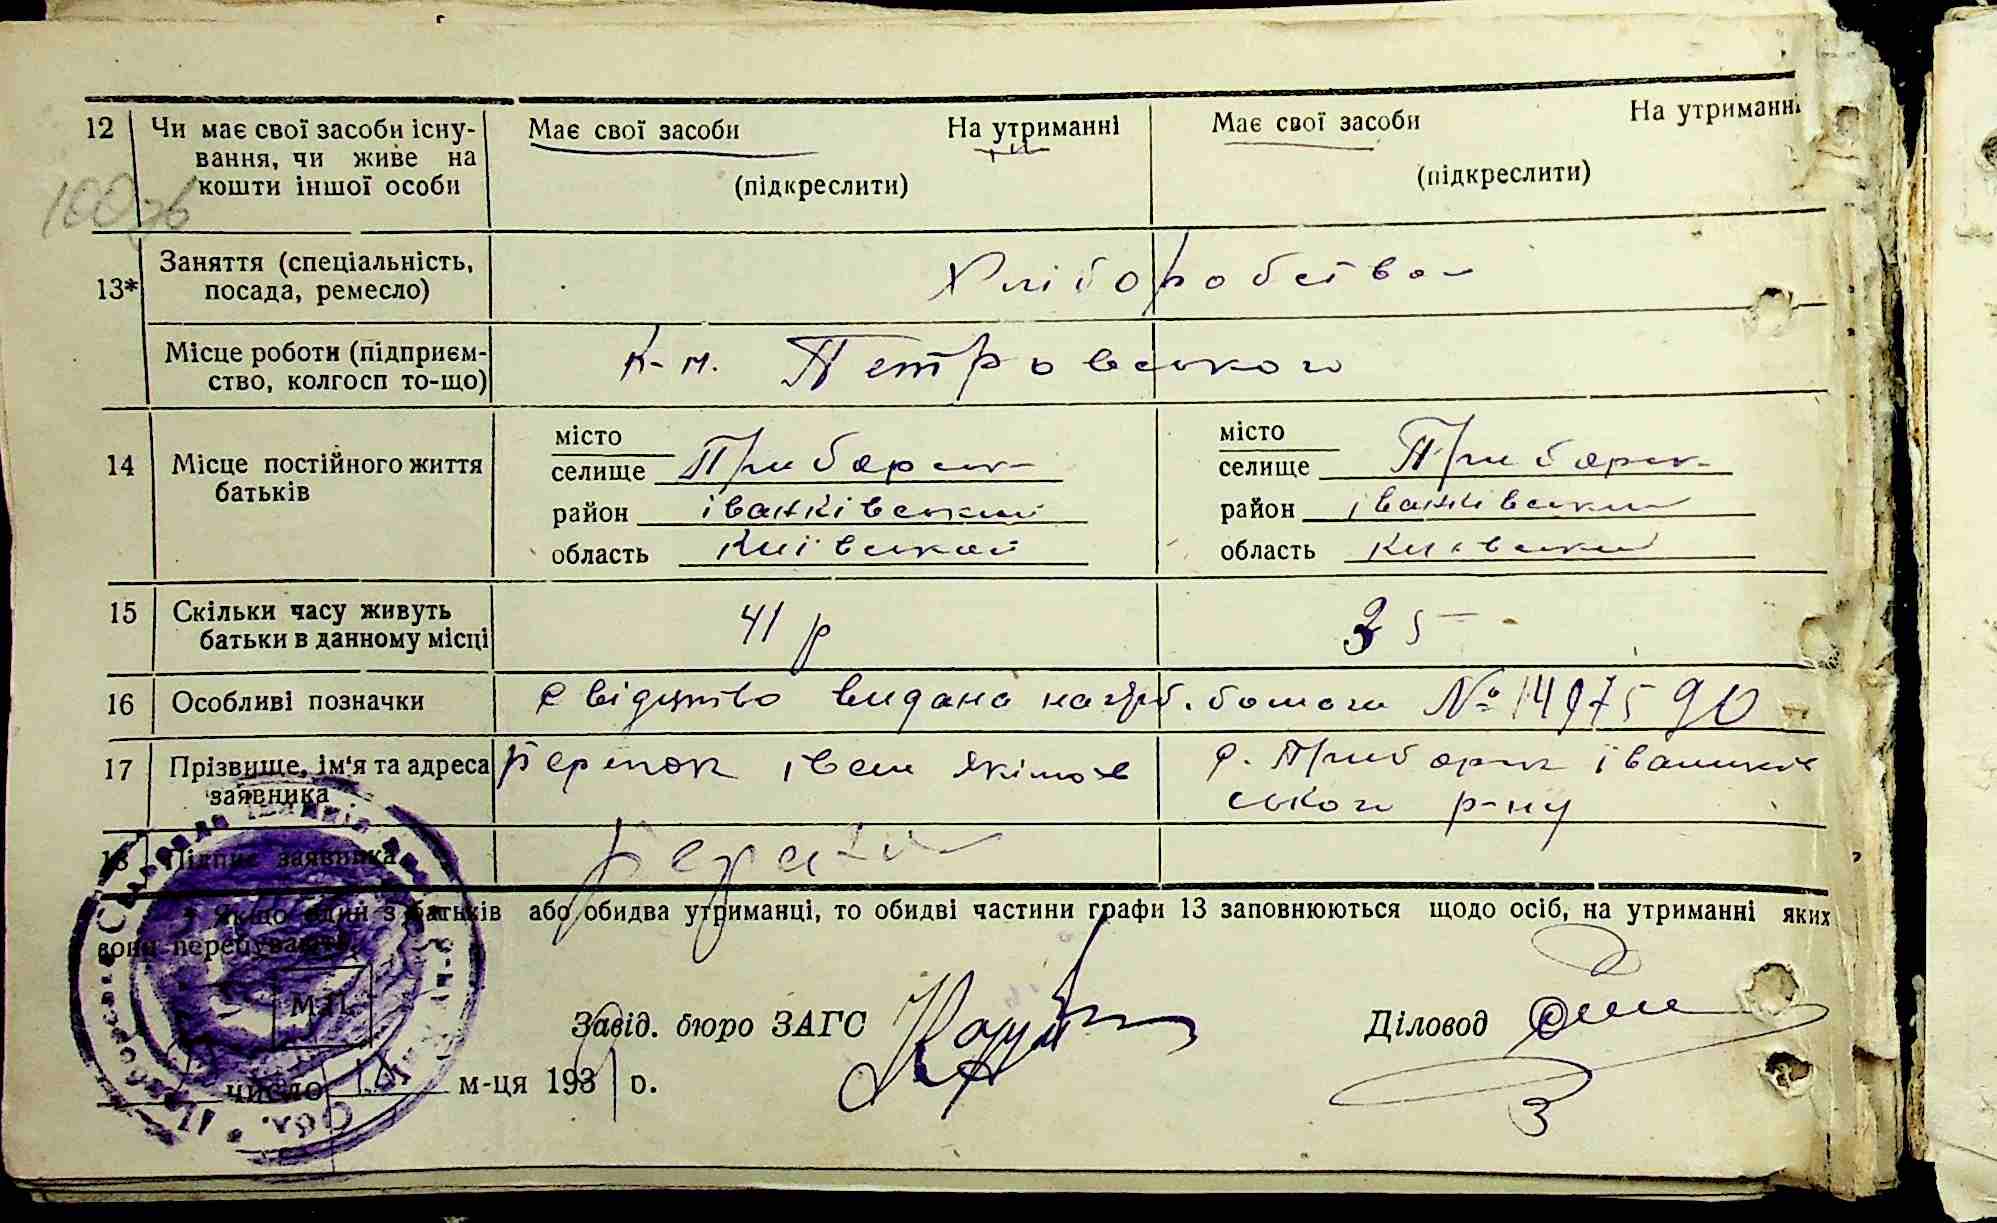 12 Чи має свої засоби існу- Має свої засоби На утриманні Має свої засоби На утриманні
вання, чи живе на
кошти іншої особи (підкреслити) (підкреслити)
13* Заняття (спеціальність, Хліборобство
посада, ремесло)
Місце роботи (підприєм- Петровського
ство, колгосп то-що)
місто місто
14 Місце постійного життя селище Приборськ селище Приборськ
батьків
район іванківський район іванківський
область Київській область Київській
15 Скільки часу живуть 41 р 35
батьки в данному місці
16 Особливі позначки Свідцтво видана на гро. бомаги № 1497590
17 Прізвище, ім'я та адреса іван Якімов с. Приборск іванків
заявника ського р-ну
18 Підпис заявника
* Якщо один з батьків або обидва утриманці, то обидві частини графи 13 заповнюються щодо осіб, на утриманні яких
вони перебувають.
М.П.
Завід. бюро ЗАГС Діловод
число м-ця 193 р.